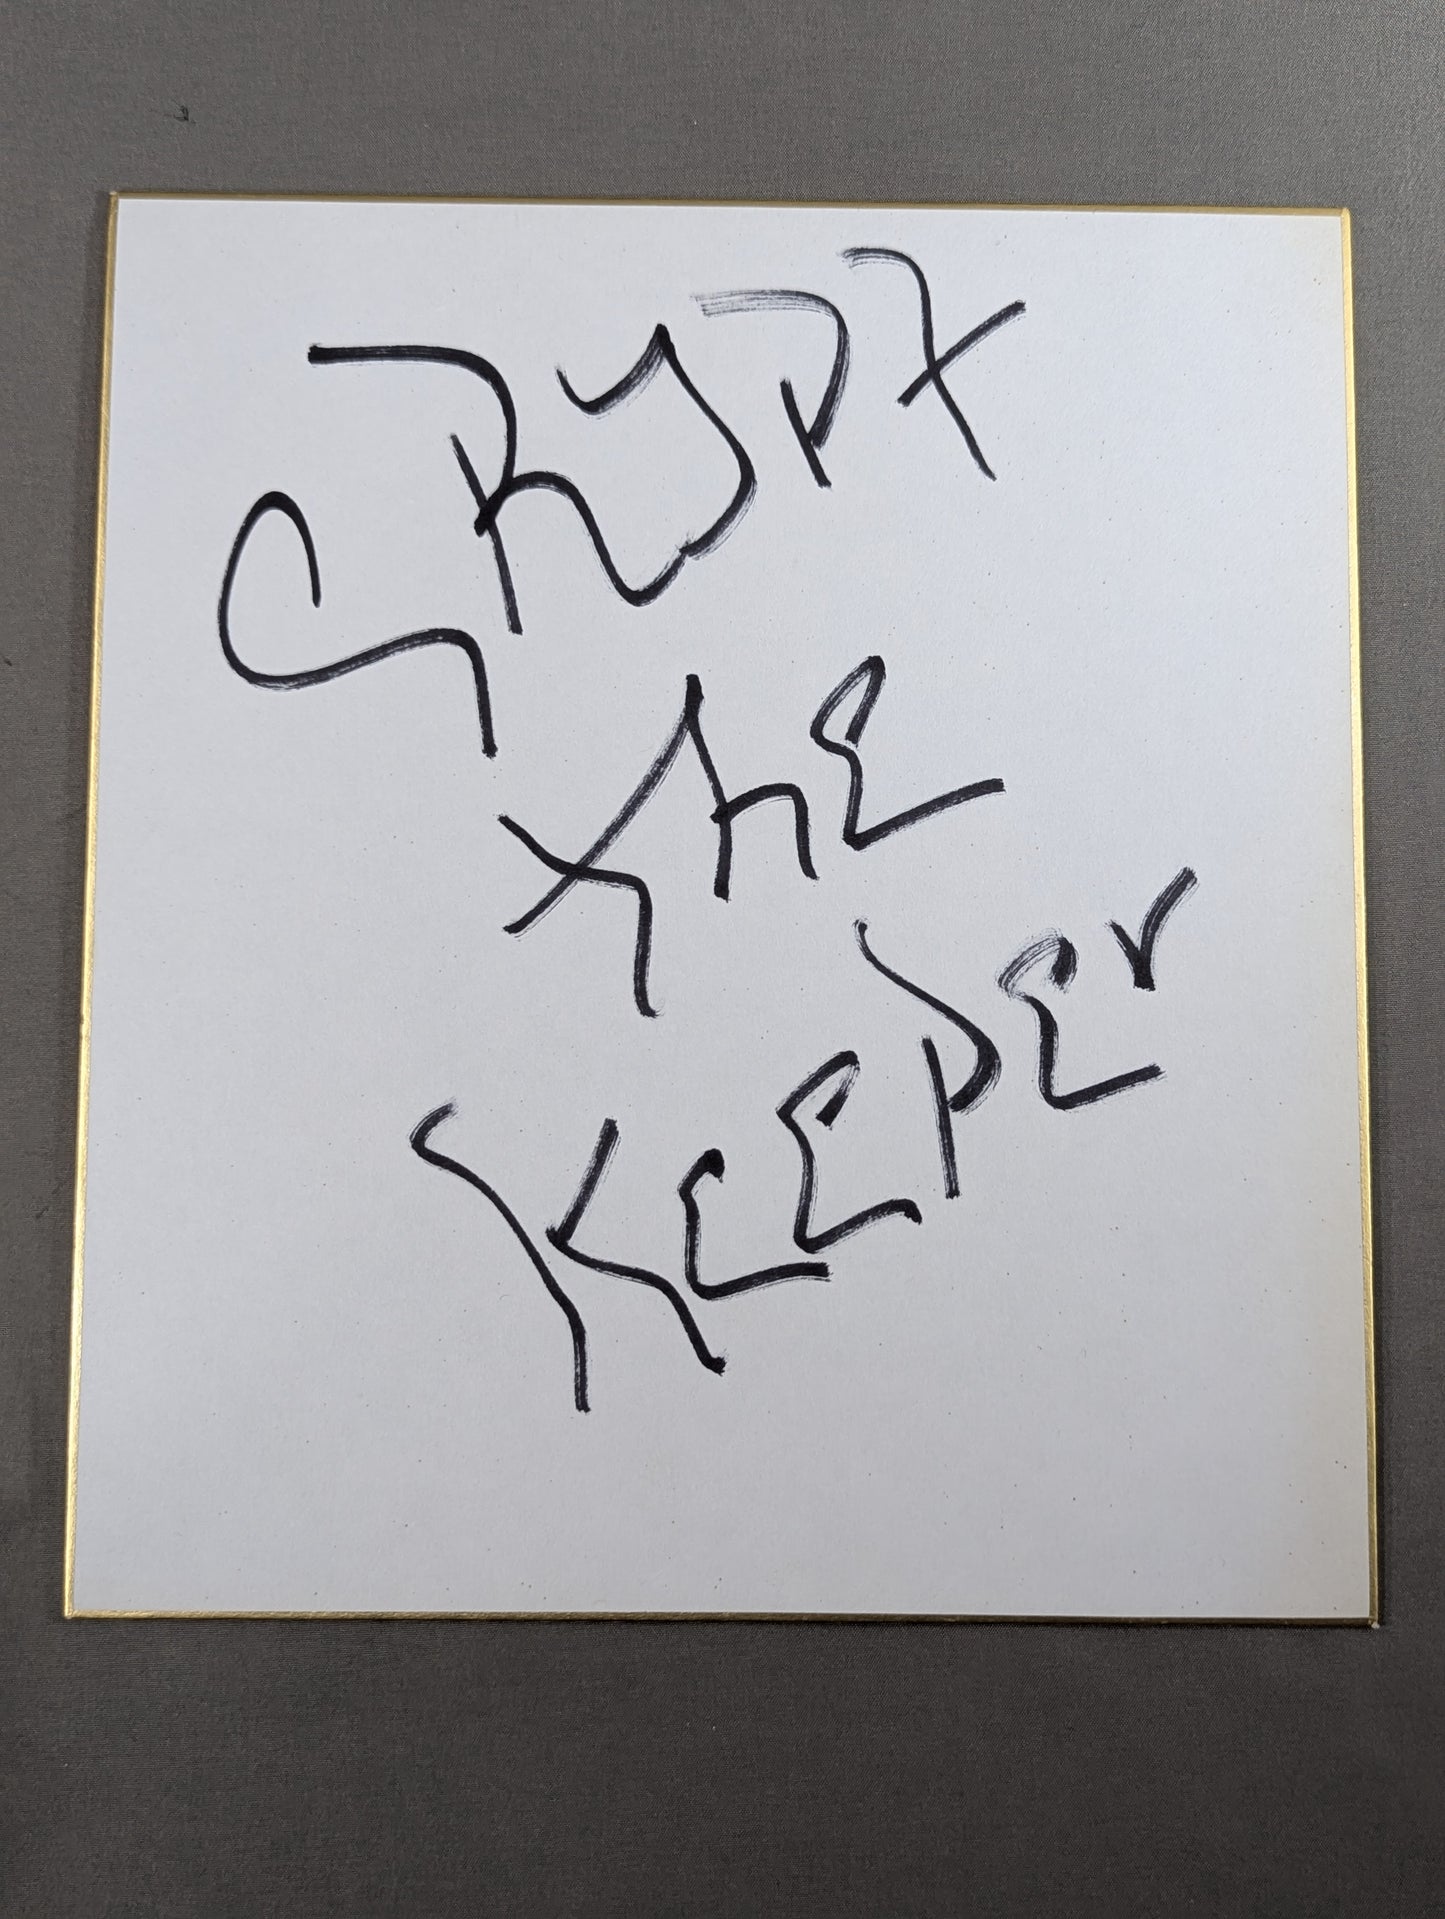 CRYPT
ThE
KEEPEr